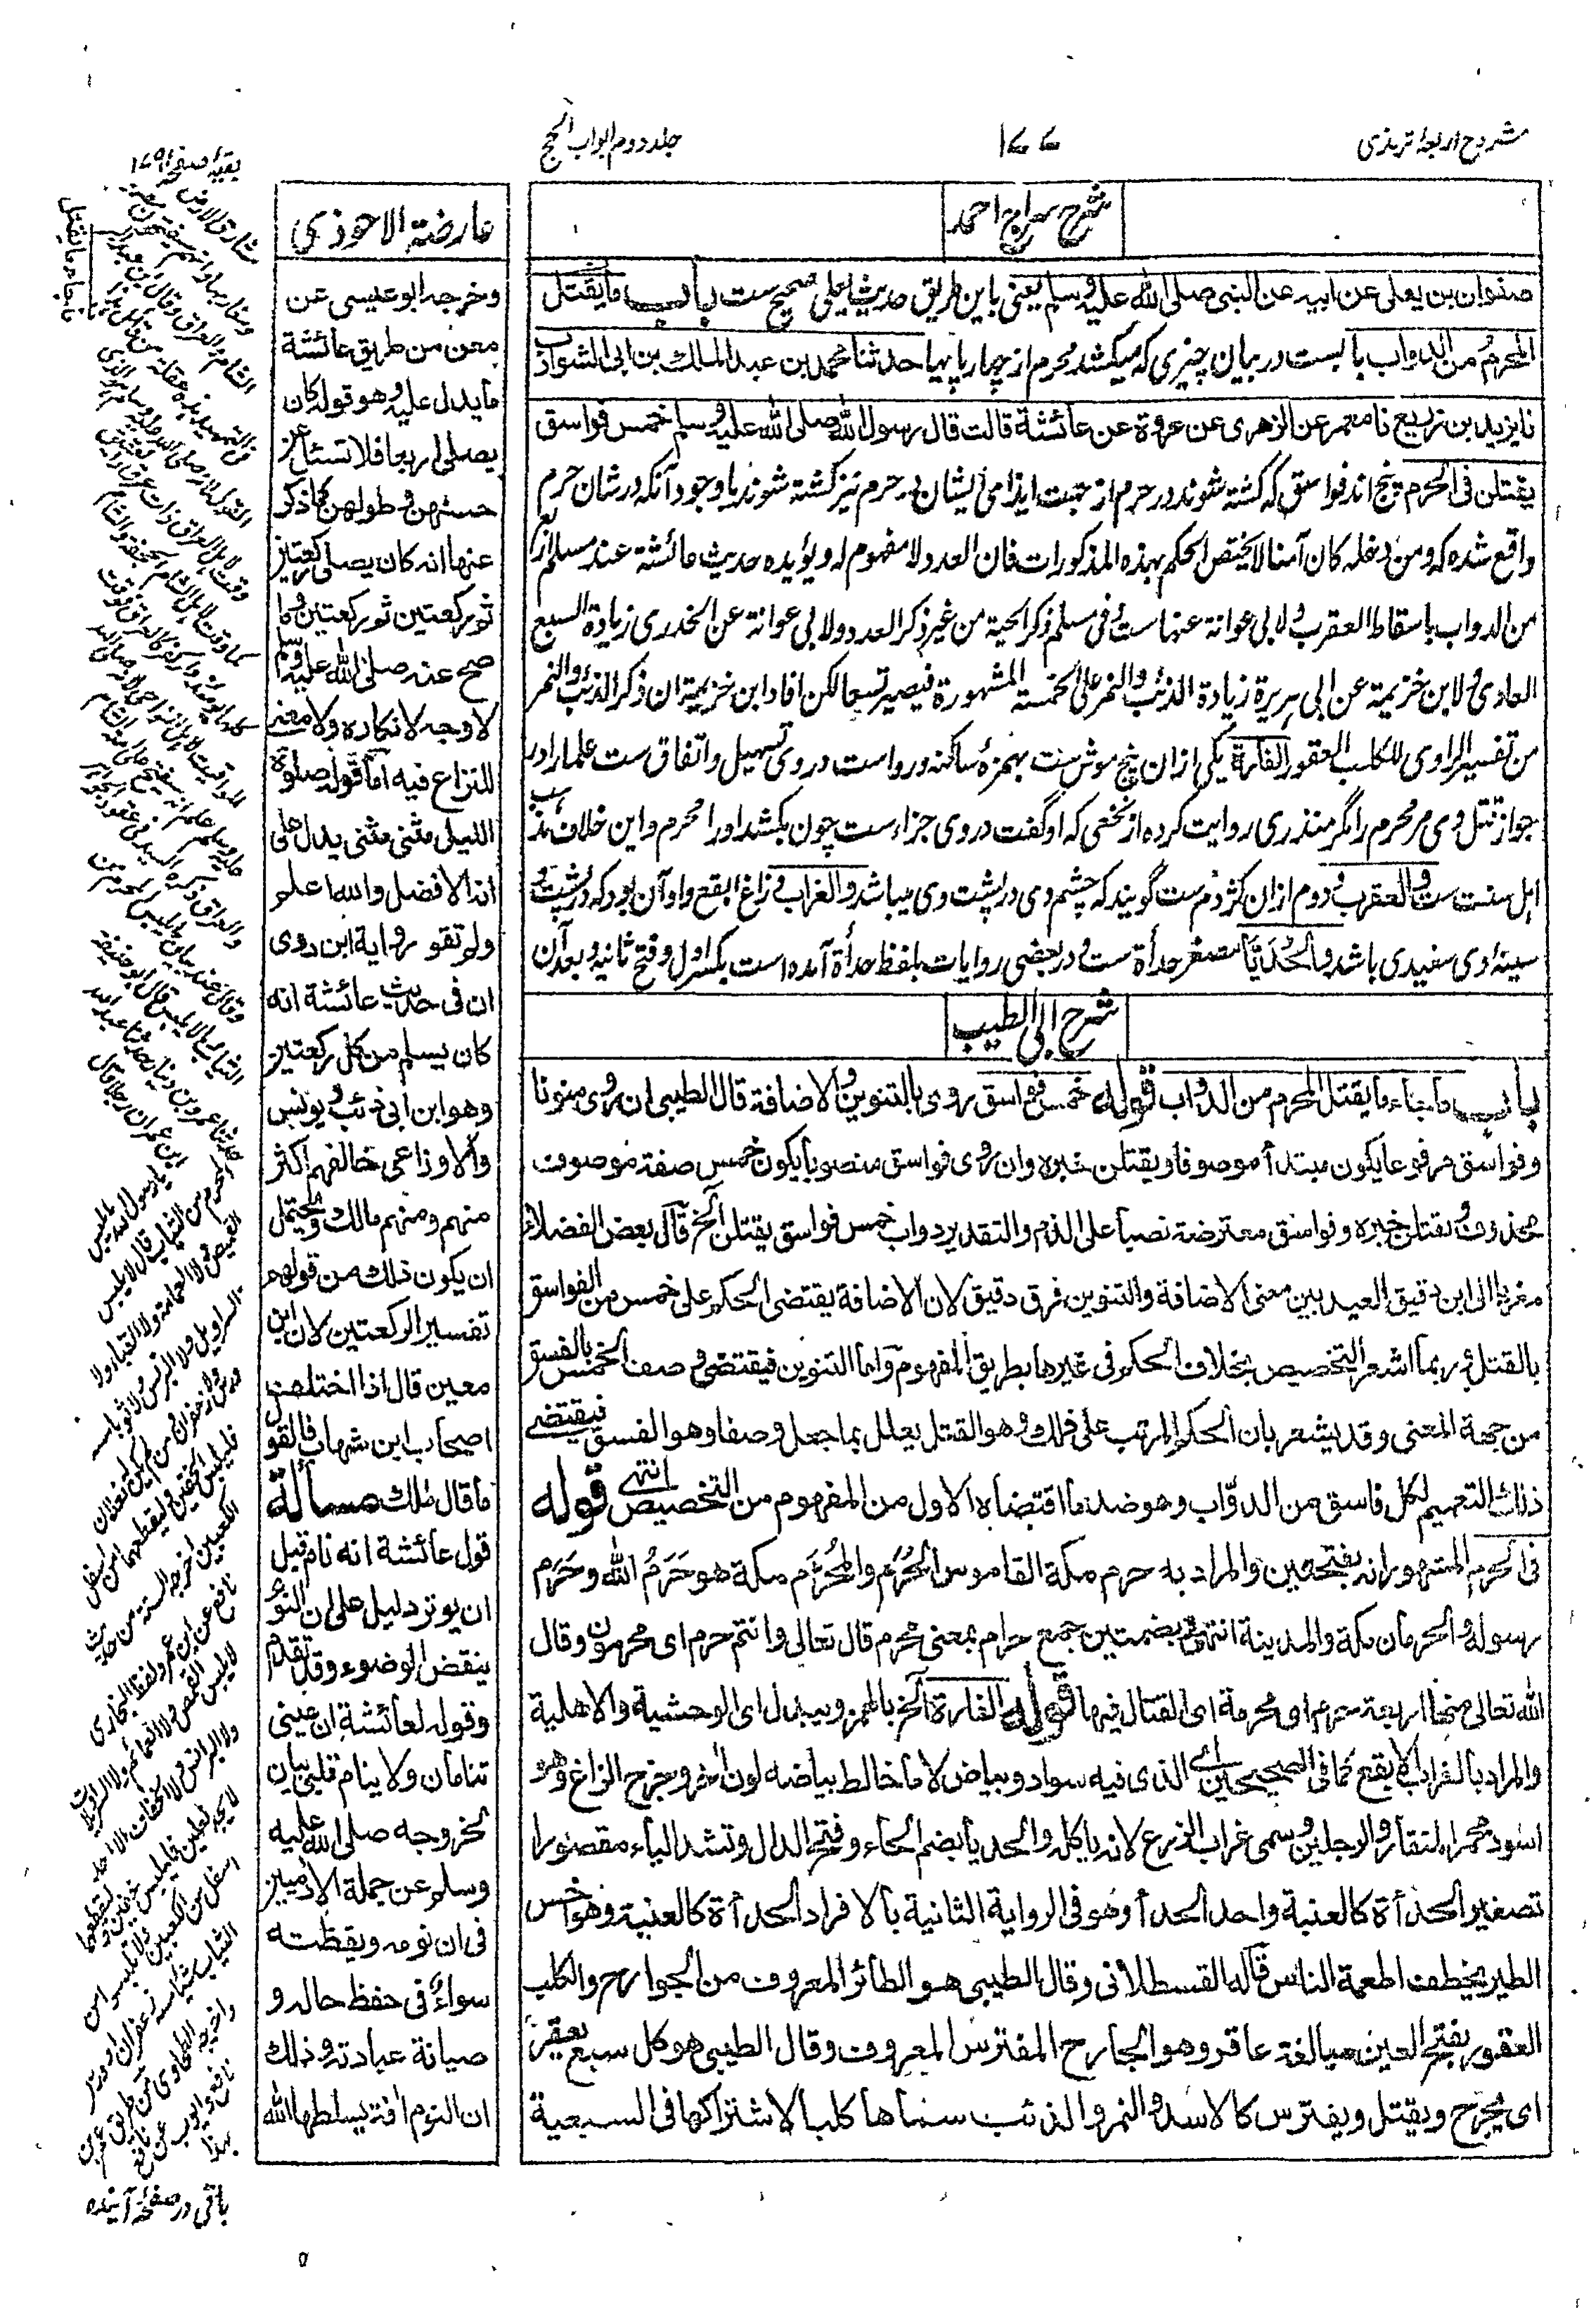 شروح اربعۂ ترمذی
۱۷۷
جلد دوم ابواب الحج
شرح سراج احمد
صفوان بن یعلی عن ابیه عن النبی صلی الله علیه وسلم یعنی باین طریق حدیث یعلی صحیح ست باب ما یقتل
المحرم من الدواب بابست در بیان چیزی که میکشد محرم از چهارپایها حدثنا محمد بن عبد الملک بن ابی الشوارب
نا یزید بن زریع نا معمر عن الزهری عن عروة عن عائشة قالت قال رسول الله صلی الله علیه وسلم خمس فواسق
یقتلن فی الحرم پنج اند فواسق که کشته شوند در حرم از جهت ایذامی ایشان پر حرم نیز کشته شوند با وجود آنکه در شان حرم
واقع شده که ومن دخله کان آمنا لا یختص الحکم بهذه المذکورات فان العدد لا مفهوم له ویؤیده حدیث عائشة عند مسلم اربع
من الدواب باسقاط العقرب ولابی عوانة عنها ست وفی مسلم ذکر الحیة من غیر ذکر العدد ولابی عوانة عن الخدری زیادة السبع
العادی ولابن خزیمة عن ابی هریرة زیادة الذئب والنمر علی الخمسة المشهورة فیصیر تسعا لکن افاد ابن خزیمة ان ذکر الذئب والنمر
من تفسیر الراوی للکلب العقور الفارة یکی ازان پنج موش ست بهمزۂ ساکنه ورواست در وی تسهیل واتفاق ست علما را در
جواز قتل وی مر محرم را مگر منذری روایت کرده از نخعی که او گفت در وی جزاءست چون بکشد او را محرم واین خلاف مذهب
اهل سنت ست والعقرب دوم ازان کژدم ست گویند که چشم وی در پشت وی میباشد والغراب زاغ ابقع واو آن بود که در پشت و
سینۂ وی سفیدی باشد والحدیا مصغر حدأة ست ودر بعضی روایات بلفظ حدأة آمده است بکسر اول وفتح ثانیه وبعد آن
شرح ابی الطیب
باب ما جاء ما یقتل المحرم من الدواب قوله خمس فواسق روی بالتنوین والاضافة قال الطیبی ان روی منونا
وفواسق مرفوعا یکون مبتدأ موصوفا ویقتلن خبره وان روی فواسق منصوبا یکون خمس صفة موصوف
محذوف ویقتلن خبره وفواسق معترضة نصبا علی الذم والتقدیر دواب خمس فواسق یقتلن الخ قال بعض الفضلاء
مغربا الی ابن دقیق العید بین معنی الاضافة والتنوین فرق دقیق لان الاضافة یقتضی الحکم علی خمس من الفواسق
بالقتل وربما اشعر التخصیص بخلاف الحکم فی غیرها بطریق المفهوم واما التنوین فیقتضی وصف الخمس بالفسق
من جهة المعنی وقد یشعر بان الحکم المرتب علی ذلک وهو القتل یعلل بما جعل وصفا وهو الفسق فیقتضی
ذلک التعمیم لکل فاسق من الدواب وهو ضد ما اقتضاه الاول من المفهوم من التخصیص انتهی قوله
فی الحرم المشهور انه بفتحتین والمراد به حرم مکة القاموس الحرم والمحرم مکة هو حَرَمُ الله وحَرَم
رسوله والحرمان مکة والمدینة انتهی بضمتین جمع حرام بمعنی محرم قال تعالی وانتم حرم ای محرمون وقال
الله تعالی منها اربعة حرم ای محرمة ای القتال فیها قوله الفارة الخ بالهمز ویبدل ای الوحشیة والاهلیة
والمراد بالغراب الابقع کما فی الصحیحین ای الذی فیه سواد وبیاض لا ما خالط بیاضه لون اخر وخرج الزاغ وهو
اسود محمر المنقار والرجلین وسمی غراب الزرع لانه یاکله والحدیا بضم الحاء وفتح الدال وتشد الیاء مقصورا
تصغیر الحدأة کالعنبة واحد الحدأ وهو فی الروایة الثانیة بالافراد الحدأة کالعنبة وهو اخس
الطیر یخطف اطعمة الناس قاله القسطلانی وقال الطیبی هو الطائر المعروف من الجوارح والکلب
العقور بفتح العین مبالغة عاقر وهو الجارح المفترس المعروف وقال الطیبی هو کل سبع یعقر
ای یجرح ویقتل ویفترس کالاسد والنمر والذئب سماها کلبا لاشتراکها فی السبعیة
عارضة الاحوذی
وخرجه ابو عیسی عن
معن من طریق عائشة
ما یدل علیه وهو قوله کان
یصلی اربعا فلا تسئل عن
حسنهن وطولهن کما ذکر
عنها انه کان یصلی رکعتین
ثم رکعتین ثم رکعتین وما
صح عنه صلی الله علیه وسلم
لا وجه لانکاره ولا معنی
للنزاع فیه اما قوله صلوة
اللیل مثنی مثنی یدل علی
انه الافضل والله اعلم
ولم تقو روایة ابن روی
ان فی حدیث عائشة انه
کان یسلم من کل رکعتین
وهو ابن ابی ذئب ویونس
والاوزاعی خالفهم اکثر
منهم ومنهم مالک ویحتمل
ان یکون ذلک من قولهم
تفسیر الرکعتین لان ابن
معین قال اذا اختلف
اصحاب ابن شهاب فالقول
ما قال ملک مسألة
قول عائشة انه نام قبل
ان یوتر دلیل علی ان النوم
ینقض الوضوء وقد تقدم
وقوله لعائشة ان عینی
تنامان ولا ینام قلبی بیان
لخروجه صلی الله علیه
وسلم عن جملة الآدمیین
فی ان نومه ویقظته
سواء فی حفظ حاله و
صیانة عبادته وذلک
ان النوم آفة یسلطها الله
بقیۂ صفحه ۱۷۹
یا رسول الله ما یلبس
المحرم من الثیاب قال لا یلبس
القمیص ولا العمامة ولا القباء ولا
السراویل ولا البرنس ولا ثوبا مسه
ورس ولا زعفران ومن لم یکن له نعلان
فلیلبس الخفین ولیقطعهما اسفل من
الکعبین اخرجه الستة من حدیث
نافع عن ابن عمر ولفظ البخاری
لا یلبس القمص ولا العمائم ولا السراویلات
ولا البرانس ولا الخفاف الا احد
باقی در صفحه آینده